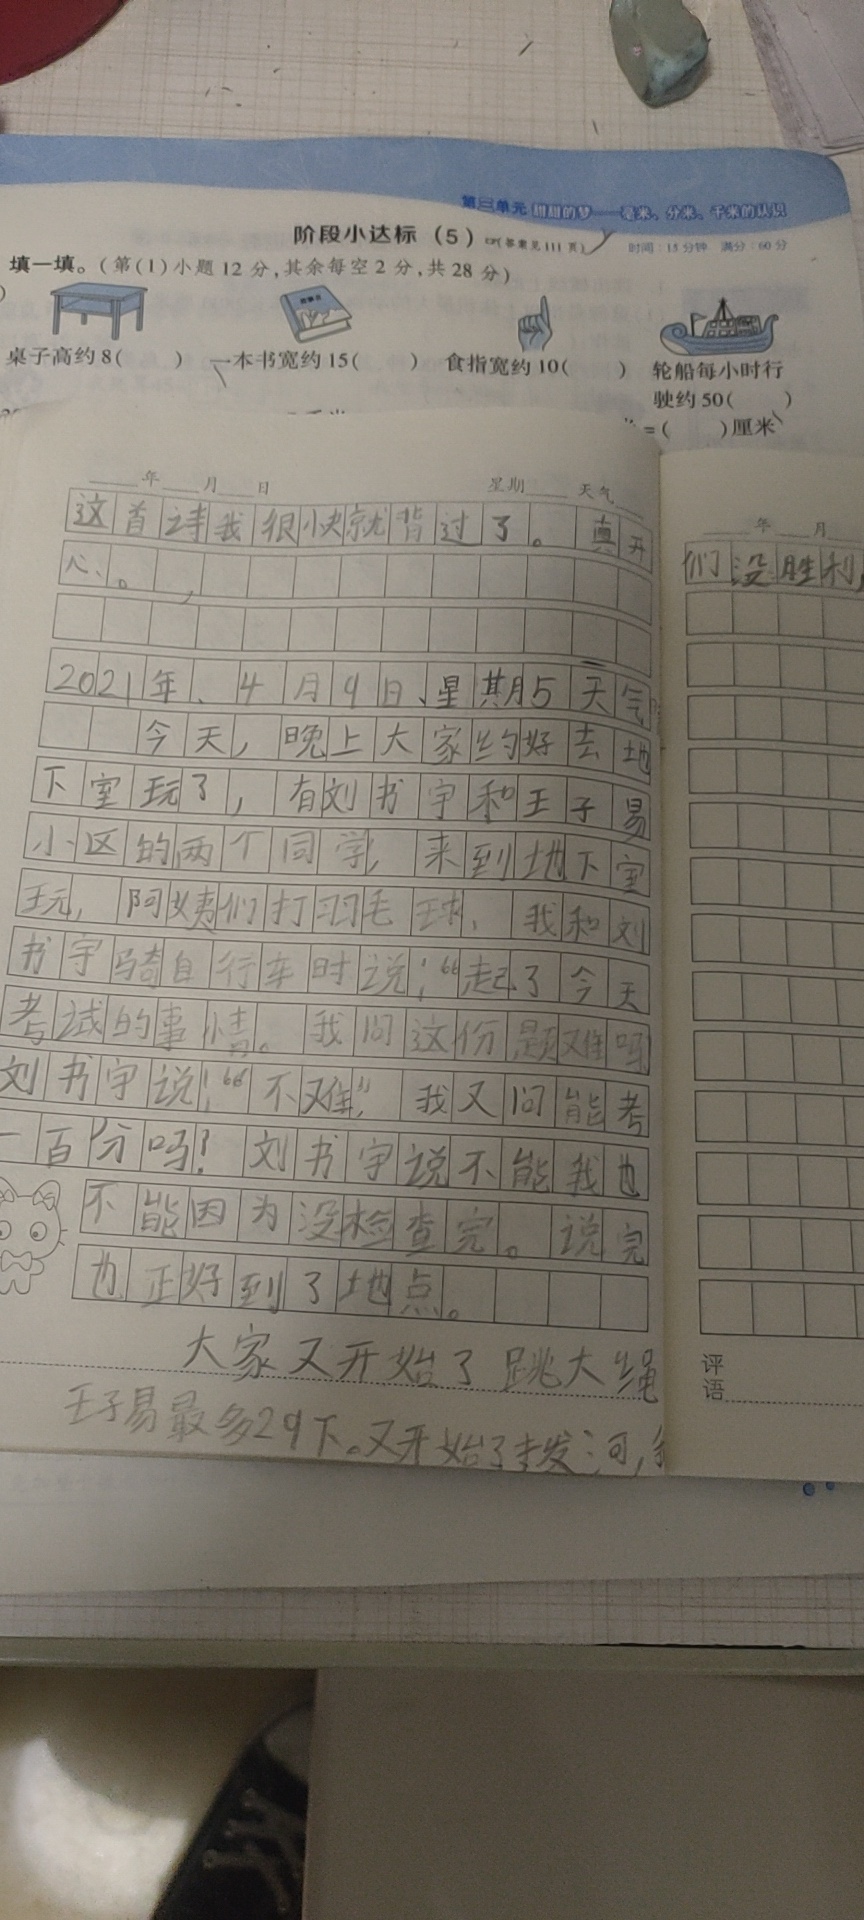 第三单元 甜甜的梦——毫米、分米、千米的认识
阶段小达标（5）（答案见111页） 时间：15分钟 满分：60分
填一填。（第(1)小题12分，其余每空2分，共28分）
桌子高约8( ) 一本书宽约15( ) 食指宽约10( ) 轮船每小时行
驶约50( )
=( )厘米
年 月 日 星期 天气
这首诗我很快就背过了。真开
心。
2021年、4月9日、星期5天气
今天，晚上大家约好去地
下室玩了，有刘书宇和王子易
小区的两个同学，来到地下室
玩，阿姨们打羽毛球，我和刘
书宇骑自行车时说：“起了今天
考试的事情。我问这份题难吗
刘书宇说：“不难”，我又问能考
一百分吗？刘书宇说不能我也
不能因为没检查完。说完
也正好到了地点。
大家又开始了跳大绳
王子易最多29下。又开始了拨河，
年 月
们没胜利，
评
语